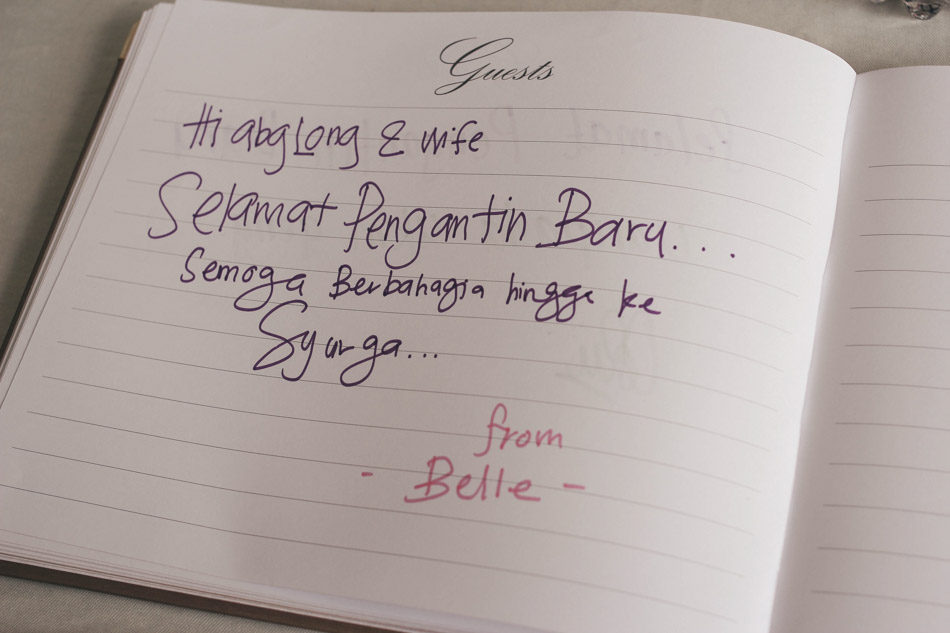 Guests
Hi abgLong & wife
Selamat Pengantin Baru....
Semoga Berbahagia hingga ke
Syurga...
from
- Belle -